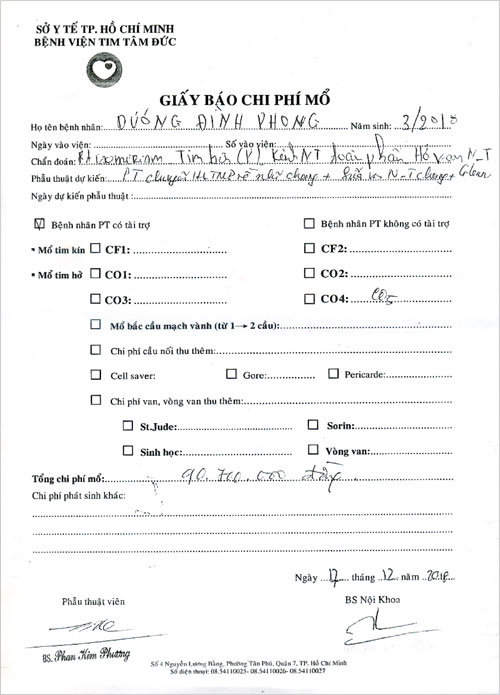 SỞ Y TẾ TP. HỒ CHÍ MINH
BỆNH VIỆN TIM TÂM ĐỨC
GIẤY BÁO CHI PHÍ MỔ
Họ tên bệnh nhân: DƯƠNG ĐÌNH PHONG Năm sinh: 3/2018
Ngày vào viện: Số vào viện:
Chẩn đoán: Tim NT toàn phần Hở van N-T
Phẫu thuật dự kiến: PT chuyển chung + Sửa van N-T chung + Glenn
Ngày dự kiến phẫu thuật:
Bệnh nhân PT có tài trợ Bệnh nhân PT không có tài trợ
* Mổ tim kín CF1: CF2:
* Mổ tim hở CO1: CO2:
CO3: CO4: CO5
Mổ bắc cầu mạch vành (từ 1→ 2 cầu):
Chi phí cầu nối thu thêm:
Cell saver: Gore: Pericarde:
Chi phí van, vòng van thu thêm:
St.Jude: Sorin:
Sinh học: Vòng van:
Tổng chi phí mổ: 90.700.000 đồng
Chi phí phát sinh khác:
Ngày 17 tháng 12 năm 2018
Phẫu thuật viên BS Nội Khoa
BS. Phan Kim Phương
Số 4 Nguyễn Lương Bằng, Phường Tân Phú, Quận 7, TP. Hồ Chí Minh
Số điện thoại: 08.54110025- 08.54110026- 08.54110027